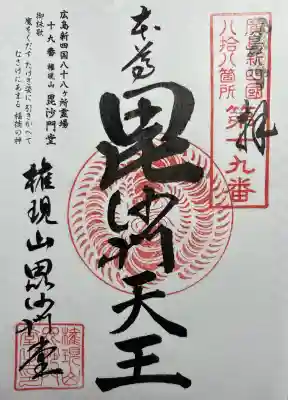 廣島新四國
八拾八箇所
第十九番
拝
本尊
毘沙門天王
広島新四国八十八ヶ所霊場
十九番 権現山 毘沙門堂
御詠歌
魔をくだす たけき姿に 引きかへて
なさけにあまる 福徳の神
権現山毘沙門堂